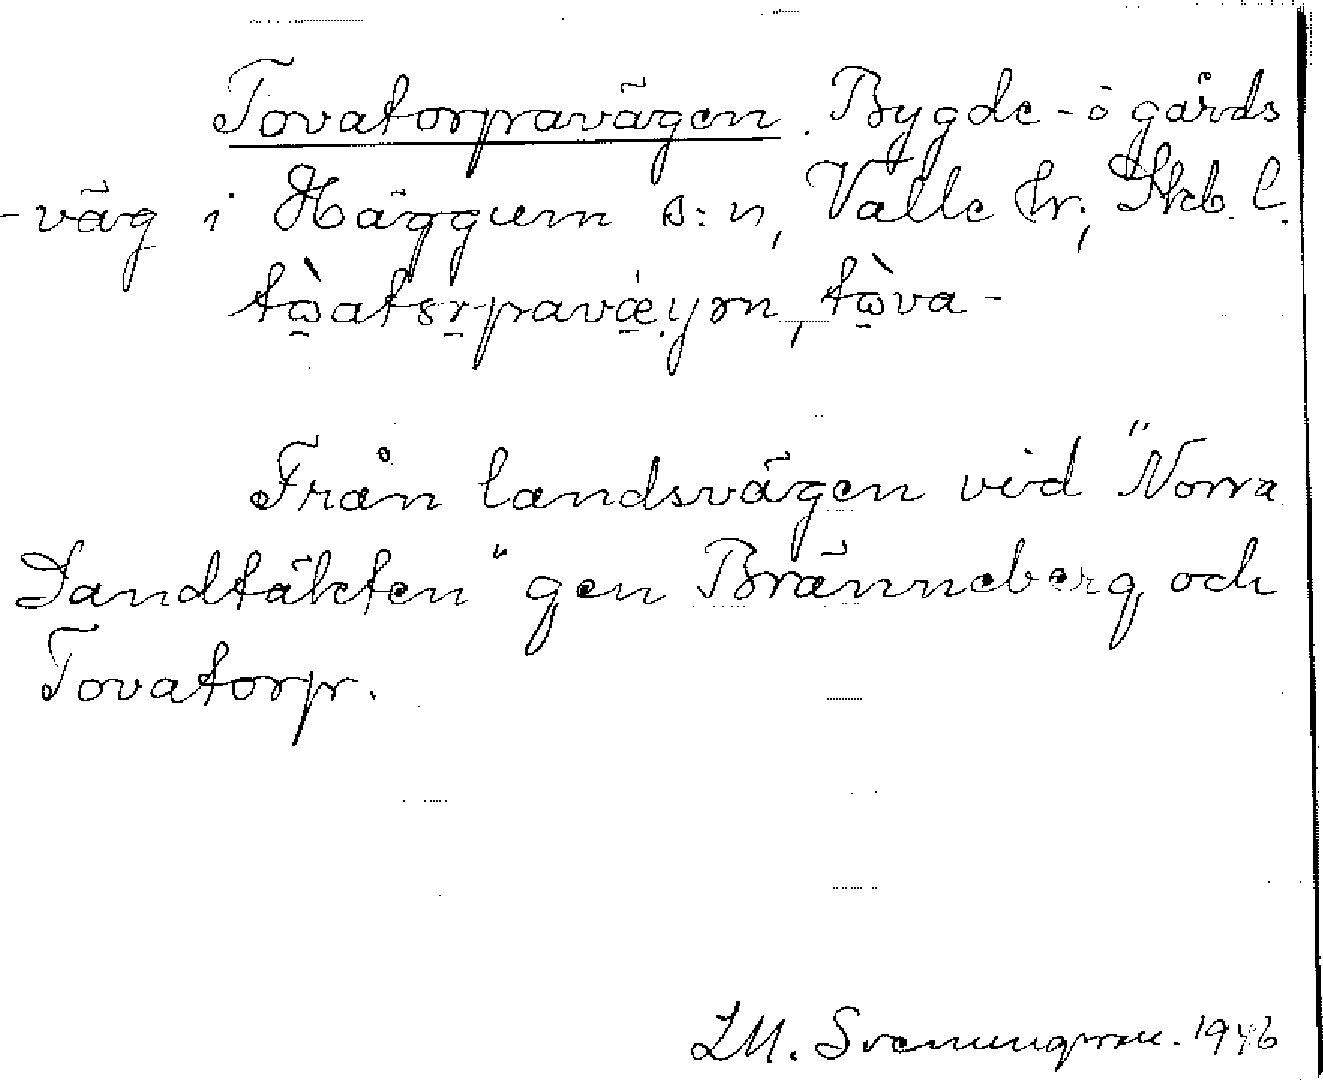 Tovatorpavägen. Bygde- o gårds
-väg i Häggum s:n, Valle hr; Skb. l.
tòatsrpavæ.yən, tòva-
Från landsvägen vid "Norra
Sandtäkten" gen Bränneberg och
Tovatorp.
LM. Svenungsson. 1946